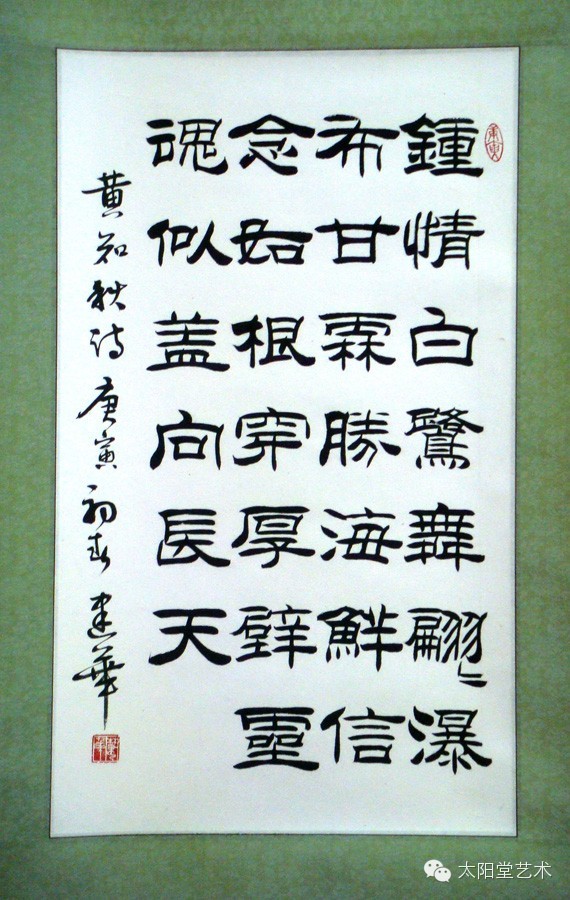 鍾情白鷺舞翩〻瀑
布甘霖勝海鮮信
念如根穿厚壁靈
魂似盖向長天
黄知秋诗 庚寅初春 建華
太阳堂艺术